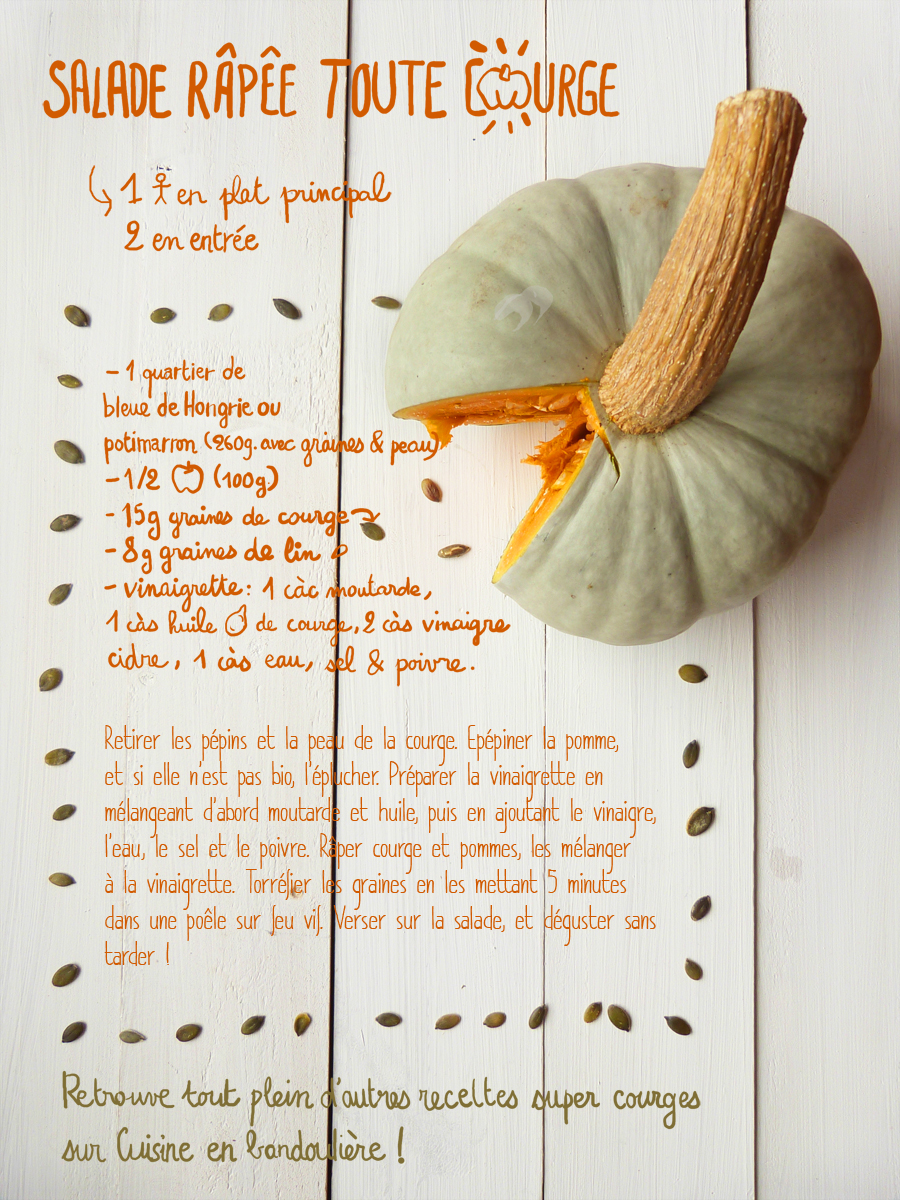 SALADE RÂPÊE TOUTE COURGE
1 en plat principal
2 en entrée
- 1 quartier de
bleue de Hongrie ou
potimarron (260g. avec graines & peau)
- 1/2 (100g)
- 15g graines de courge
- 8g graines de lin
- vinaigrette: 1 càc moutarde,
1 càs huile de courge, 2 càs vinaigre
cidre, 1 càs eau, sel & poivre.
Retirer les pépins et la peau de la courge. Epépiner la pomme,
et si elle n'est pas bio, l'éplucher. Préparer la vinaigrette en
mélangeant d'abord moutarde et huile, puis en ajoutant le vinaigre,
l'eau, le sel et le poivre. Râper courge et pommes, les mélanger
à la vinaigrette. Torréfier les graines en les mettant 5 minutes
dans une poêle sur feu vif. Verser sur la salade, et déguster sans
tarder !
Retrouve tout plein d'autres recettes super courges
sur Cuisine en bandoulière !